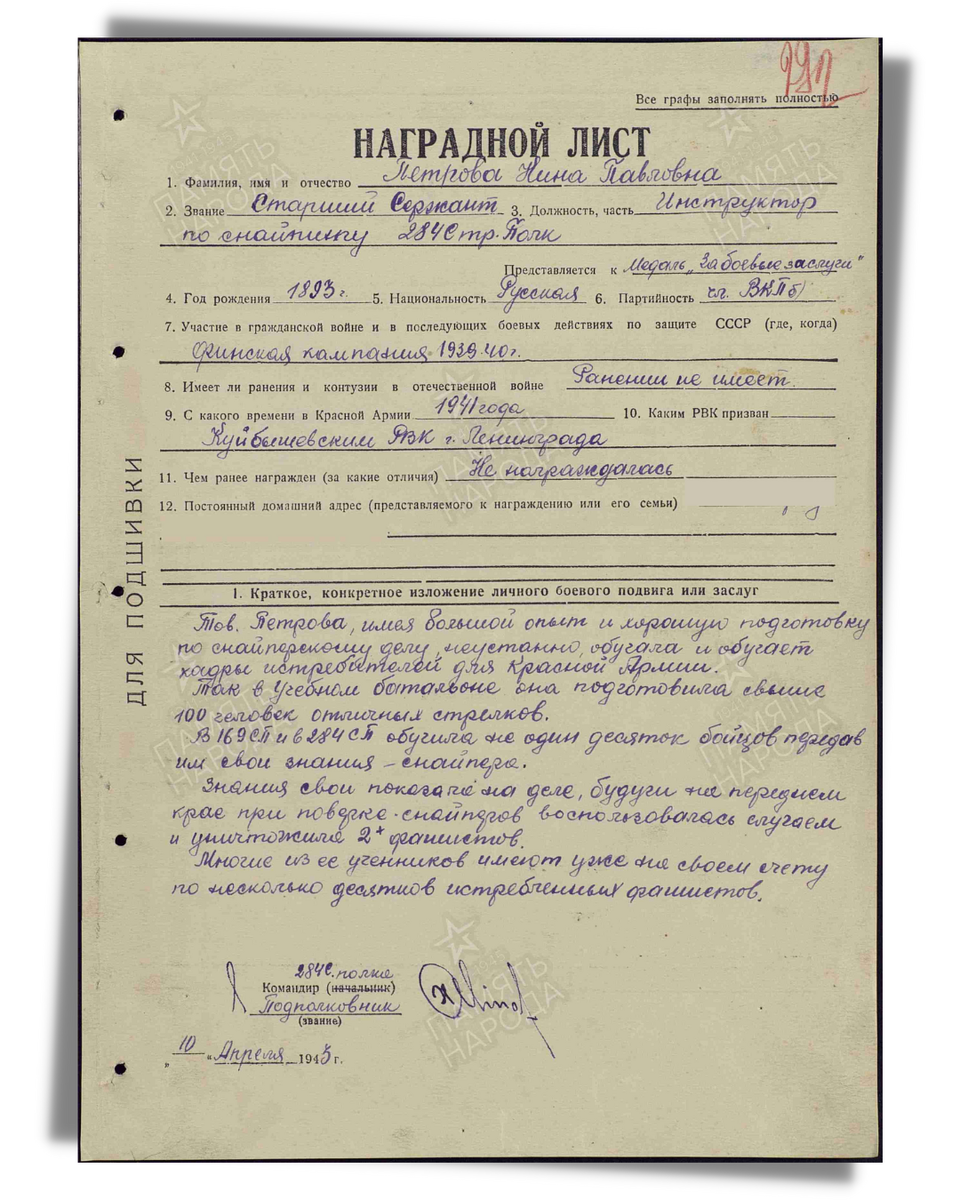 Все графы заполнять полностью
НАГРАДНОЙ ЛИСТ
1. Фамилия, имя и отчество Петрова Нина Павловна
2. Звание Старший Сержант 3. Должность, часть Инструктор
по снайпингу 284 Стр. Полк
Представляется к Медаль „За боевые заслуги"
4. Год рождения 1893 г. 5. Национальность Русская 6. Партийность чл. ВКП б)
7. Участие в гражданской войне и в последующих боевых действиях по защите СССР (где, когда)
Финская кампания 1939-40 г.
8. Имеет ли ранения и контузии в отечественной войне Ранении не имеет.
9. С какого времени в Красной Армии 1941 года 10. Каким РВК призван
Куйбышевским РВК г. Ленинграда
11. Чем ранее награжден (за какие отличия) Не награждалась
12. Постоянный домашний адрес (представляемого к награждению или его семьи)
ДЛЯ ПОДШИВКИ
1. Краткое, конкретное изложение личного боевого подвига или заслуг
Тов. Петрова, имея большой опыт и хорошую подготовку
по снайперскому делу, неустанно, обучала и обучает
кадры истребителей для Красной Армии.
Так в Учебном батальоне она подготовила свыше
100 человек отличных стрелков.
В 169 СП и в 284 СП обучила не один десяток бойцов передав
им свои знания – снайпера.
Знания свои показала на деле, будучи на переднем
крае при поверке снайперов воспользовалась случаем
и уничтожила 2х фашистов.
Многие из ее ученников имеют уже на своем счету
по несколько десятков истребленных фашистов.
284 с. полка
Командир (начальник)
Подполковник
(звание)
„10" Апреля 1943 г.
ПАМЯТЬ
НАРОДА